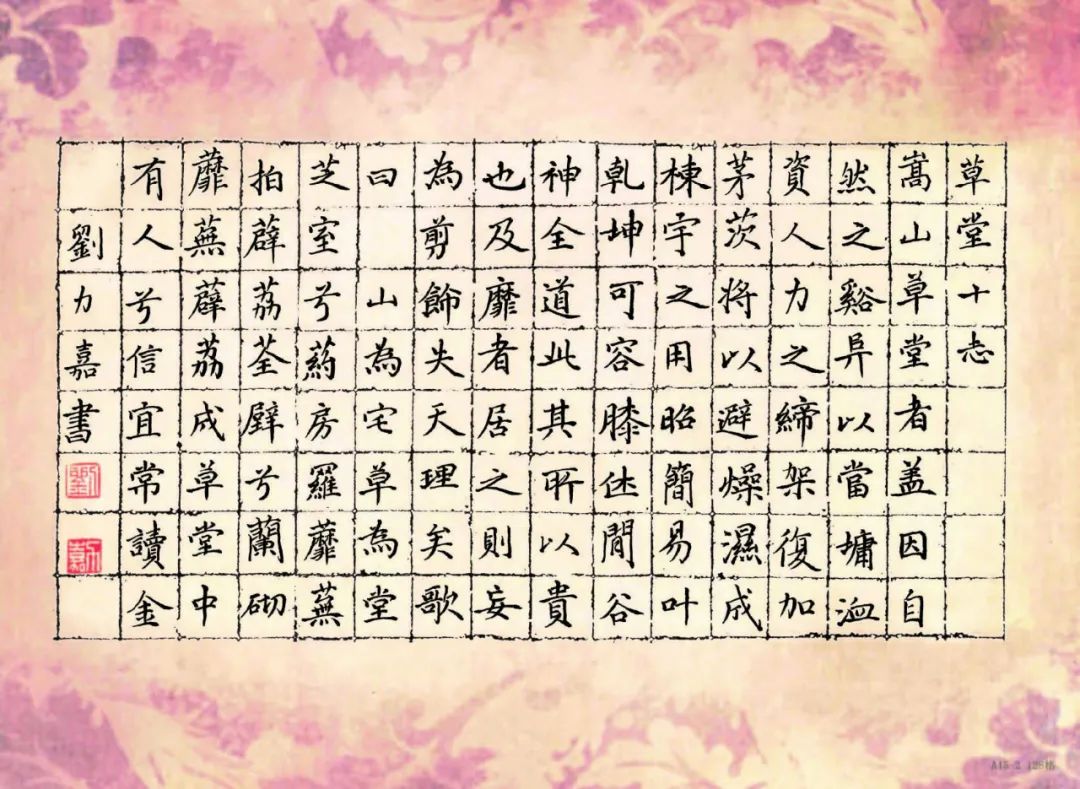 草堂十志
嵩山草堂者盖因自
然之谿阜以當墉洫
資人力之締架復加
茅茨將以避燥濕成
棟宇之用昭簡易叶
乹坤可容膝休閒谷
神全道此其所以貴
也及靡者居之則妄
為剪飾失天理矣歌
曰 山為宅草為堂
芝室兮葯房羅蘼蕪
拍薜荔荃壁兮蘭砌
蘼蕪薜荔成草堂中
有人兮信宜常讀金
劉力嘉書
A15-2 128格